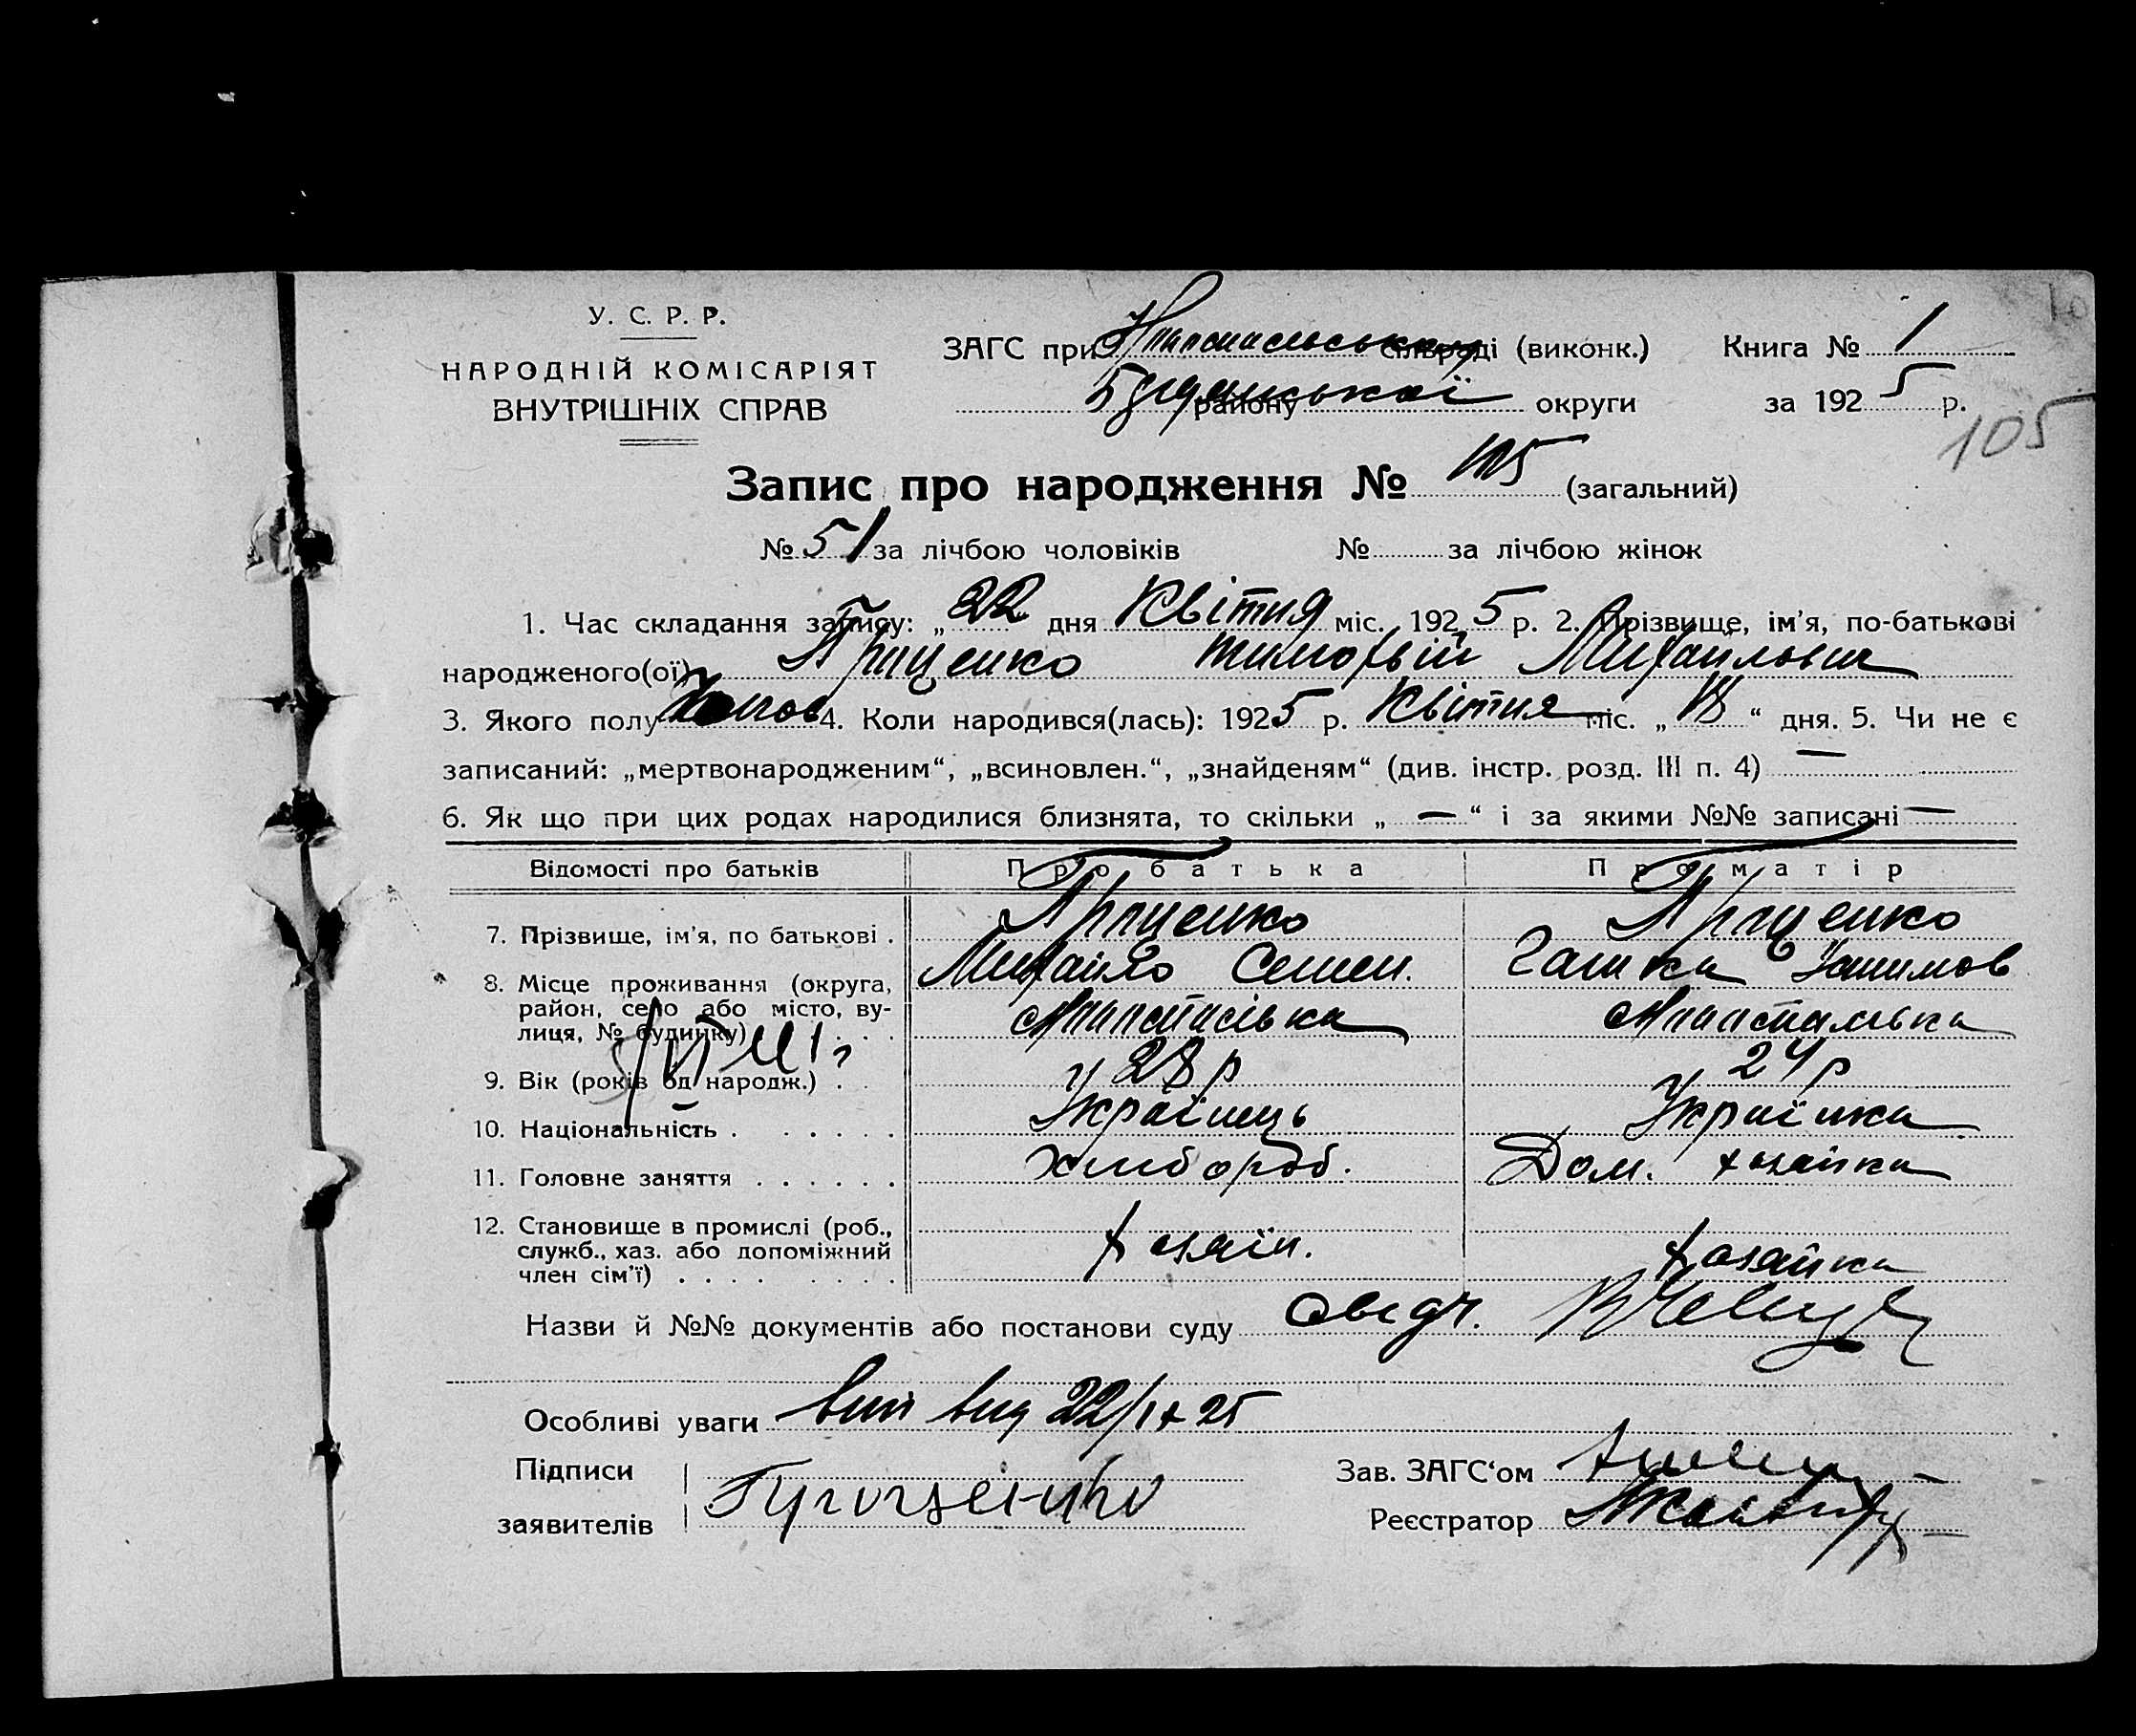 У. С. Р. Р.
НАРОДНІЙ КОМІСАРІЯТ
ВНУТРІШНІХ СПРАВ
ЗАГС при сільраді (виконк.)
району округи
Книга № 1
за 1925 р.
105
Запис про народження № 105 (загальний)
№ 51 за лічбою чоловіків № за лічбою жінок
1. Час складання запису: „22 дня Квітня міс. 1925 р. 2. Прізвище, ім'я, по-батькові
народженого(ої) Проценко Тимофій Михайлович
3. Якого полу 4. Коли народився(лась): 1925 р. Квітня міс. „18“ дня. 5. Чи не є
записаний: „мертвонародженим“, „всиновлен.“, „знайденям“ (див. інстр. розд. III п. 4) —
6. Як що при цих родах народилися близнята, то скільки „ — “ і за якими №№ записані —
Відомості про батьків Про батька Про матір
7. Прізвище, ім'я, по батькові . Проценко Проценко
Михайло Семен.
8. Місце проживання (округа,
район, село або місто, ву-
лиця, № будинку)
9. Вік (років од народж.) . 28 р 24 р
10. Національність . . . . . . Українець Українка
11. Головне заняття . . . . . . Хлібороб. Дом. хозайка
12. Становище в промислі (роб.,
служб., хаз. або допоміжний
член сім'ї) . . . . . . . . хозаїн. хозайка
Назви й №№ документів або постанови суду
Особливі уваги 22/IX 25
Підписи
заявителів Проценко
Зав. ЗАГС‘ом
Реєстратор